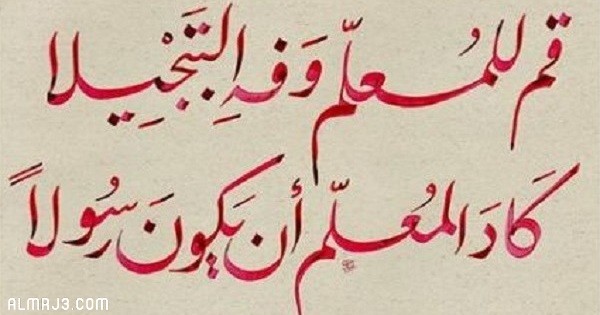 قم للمُعلّم وَفهِ التَبْجِيلا
كَادَ المُعلّم أن يَكونَ رسُولاً
ALMRJ3.COM